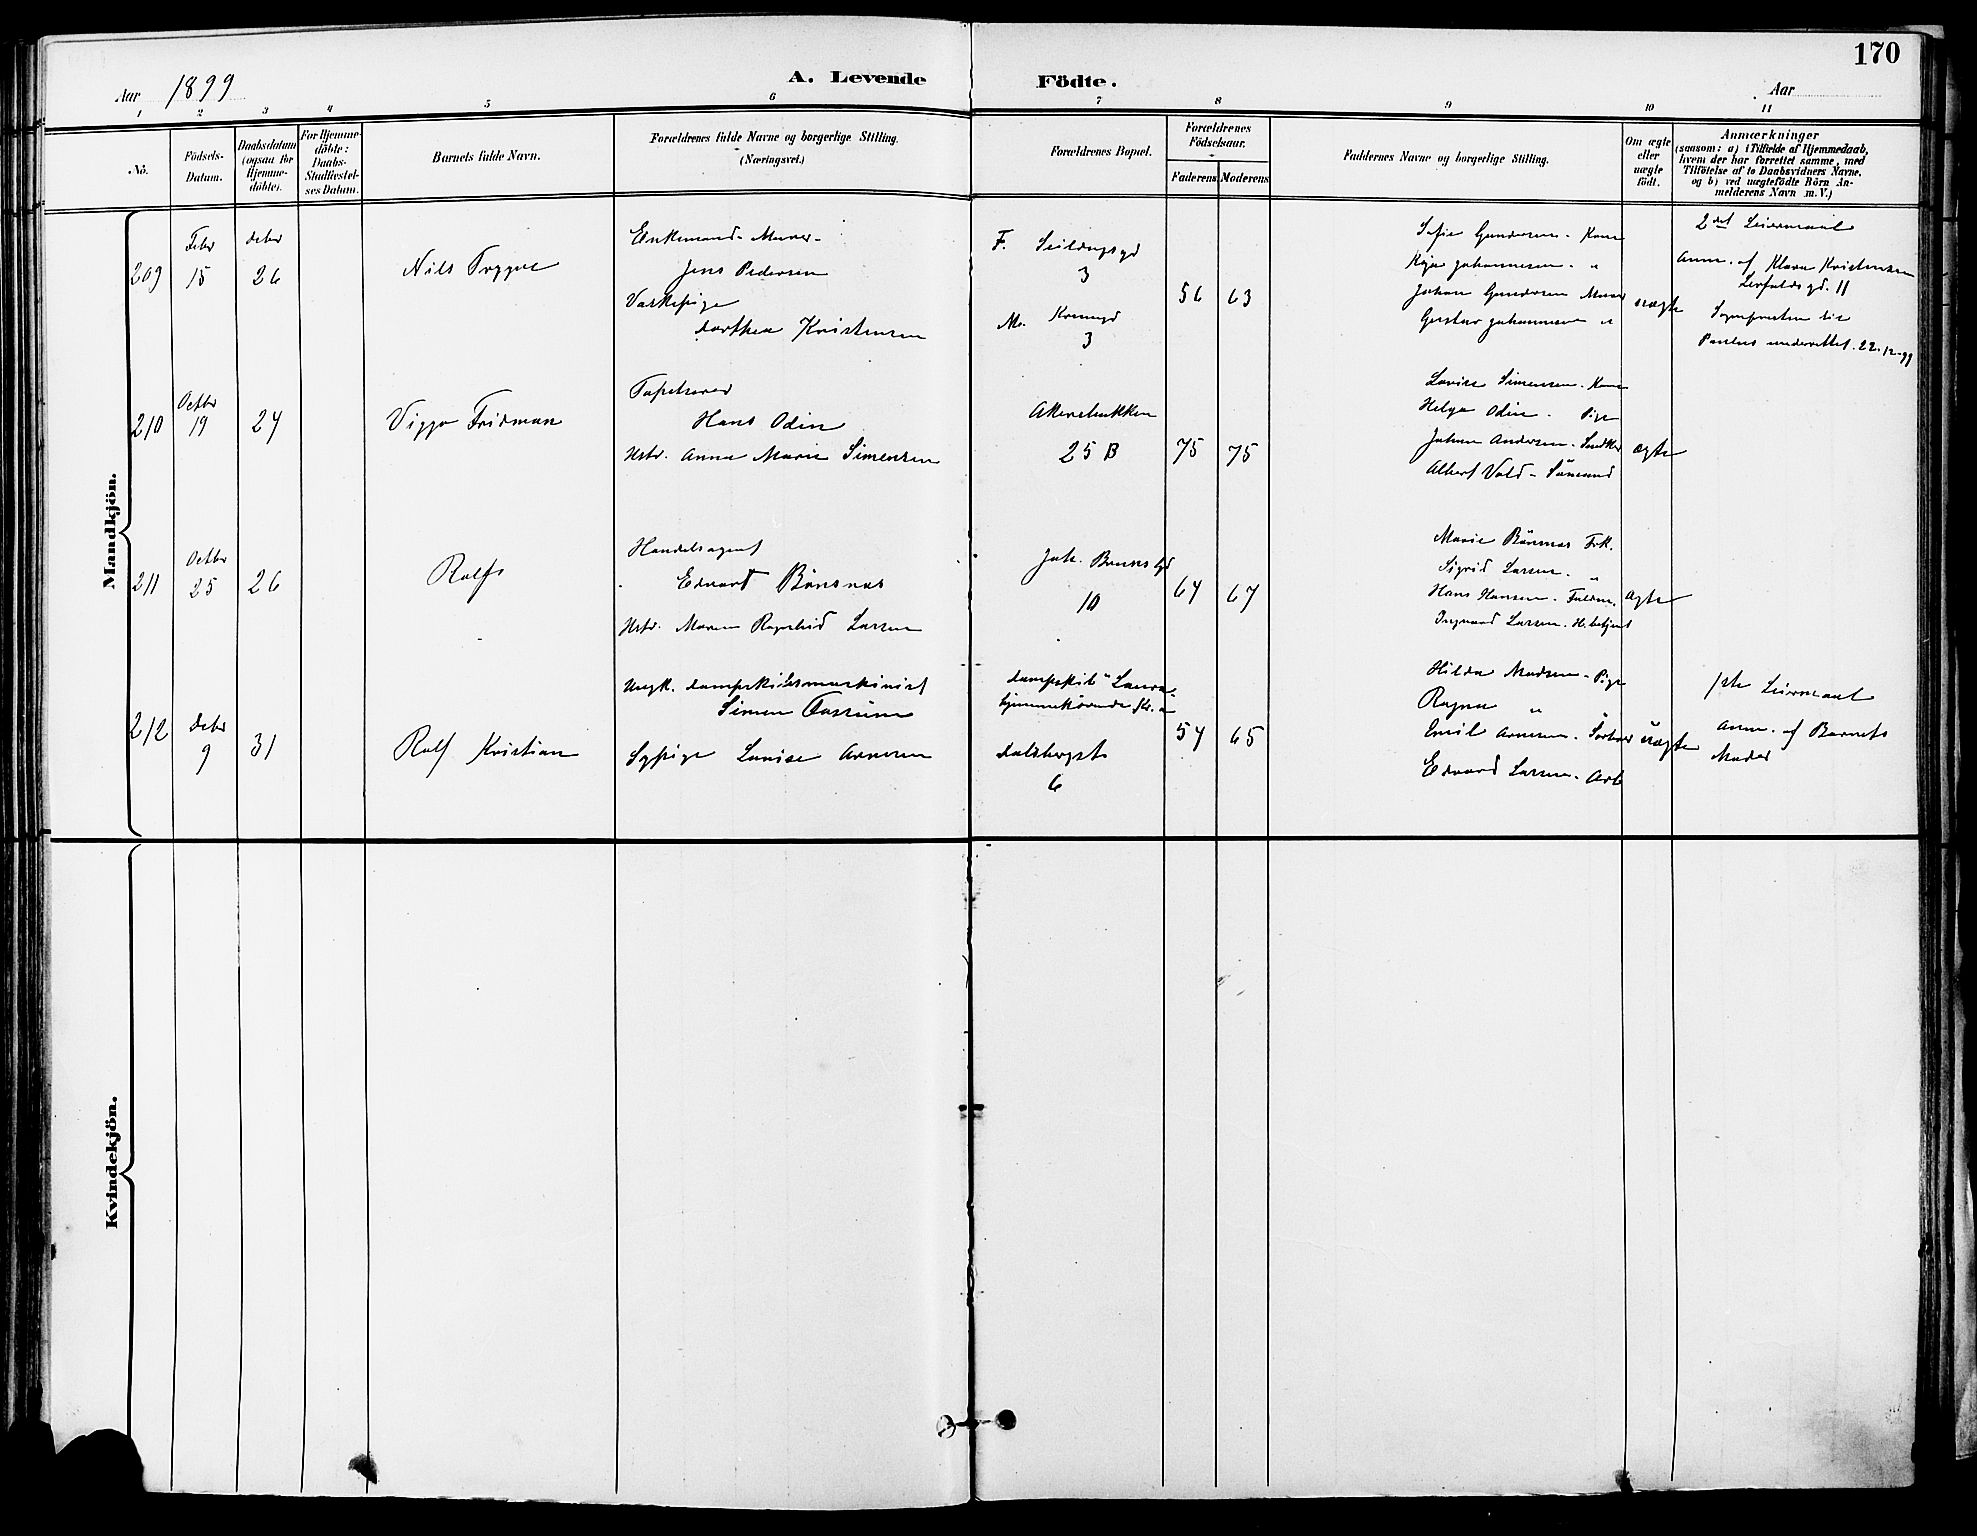 170
Aar 1899
A. Levende Födte.
Aar
1 2 3 4 5 6 7 8 9 10 11
No.
Födsels-
Datum.
Daabsdatum
(ogsaa for
Hjemme-
döbte).
For Hjemme-
döbte:
Daabs-
Stadfæstel-
ses Datum.
Barnets fulde Navn.
Forældrenes fulde Navne og borgerlige Stilling.
(Næringsvei.)
Forældrenes Bopæl.
Forældrenes
Födselsaar.
Faderens
Moderens
Faddernes Navne og borgerlige Stilling.
Om ægte
eller
uægte
födt.
Anmærkninger
(saasom: a) i Tilfælde af Hjemmedaab,
hvem der har forrettet samme, med
Tilföielse af to Daabsvidners Navne.
og b) ved uægtefödte Börn An-
melderens Navn m. V.)
Mandkjön.
209
Febr
15
Debr
26
Nils Tryggve
Enkemand. Murer.
Jens Pedersen
Vaskepige
Dorthea Kristensen
F. Seildugsgd
3
M. Korsgd
3
56
63
Sofie Gundersen. Kone
Kaja Johannesen. "
Johan Gundersen Murer
Gustav Johannesen "
uægte
2det Leiermaal
Anm. af Klara Kristensen
Lerfaldsgd. 11
Sognepresten til
Paulus underrettet. 22-12-99
210
Octbr
19
24
Viggo Fridman
Tapetserer
Hans Odin
Hstr. Anna Marie Simensen
Akersbakken
25 B
75
75
Lovise Simensen. Kone
Helga Odin. Pige
Johan Andersen. Snedker
Albert Vold. Sömand
ægte
211
Octbr
25
26
Rolf
Handelsagent
Edvart Bönsnæs
Hstr. Maren Ragnhild Larsen
Joh. Brunsgd
10
64
67
Marie Bönsnæs Frk.
Sigrid Larsen. "
Hans Hansen. Fuldm.
Ingvard Larsen. H. betjent
ægte
212
Debr
9
31
Rolf Kristian
Ungk. Dampskibsmaskinist
Simen Aasrum
Sypige Lovise Arnesen
Dampskib "Laura"
hjemmehörende Kr.a
Dalsbergst
6
54
65
Hilda Madsen. Pige
Ragna "
Emil Arnesen.
Edvard Larsen. Arb
uægte
1ste Leiermaal
Anm. af Barnets
Moder
Kvindekjön.